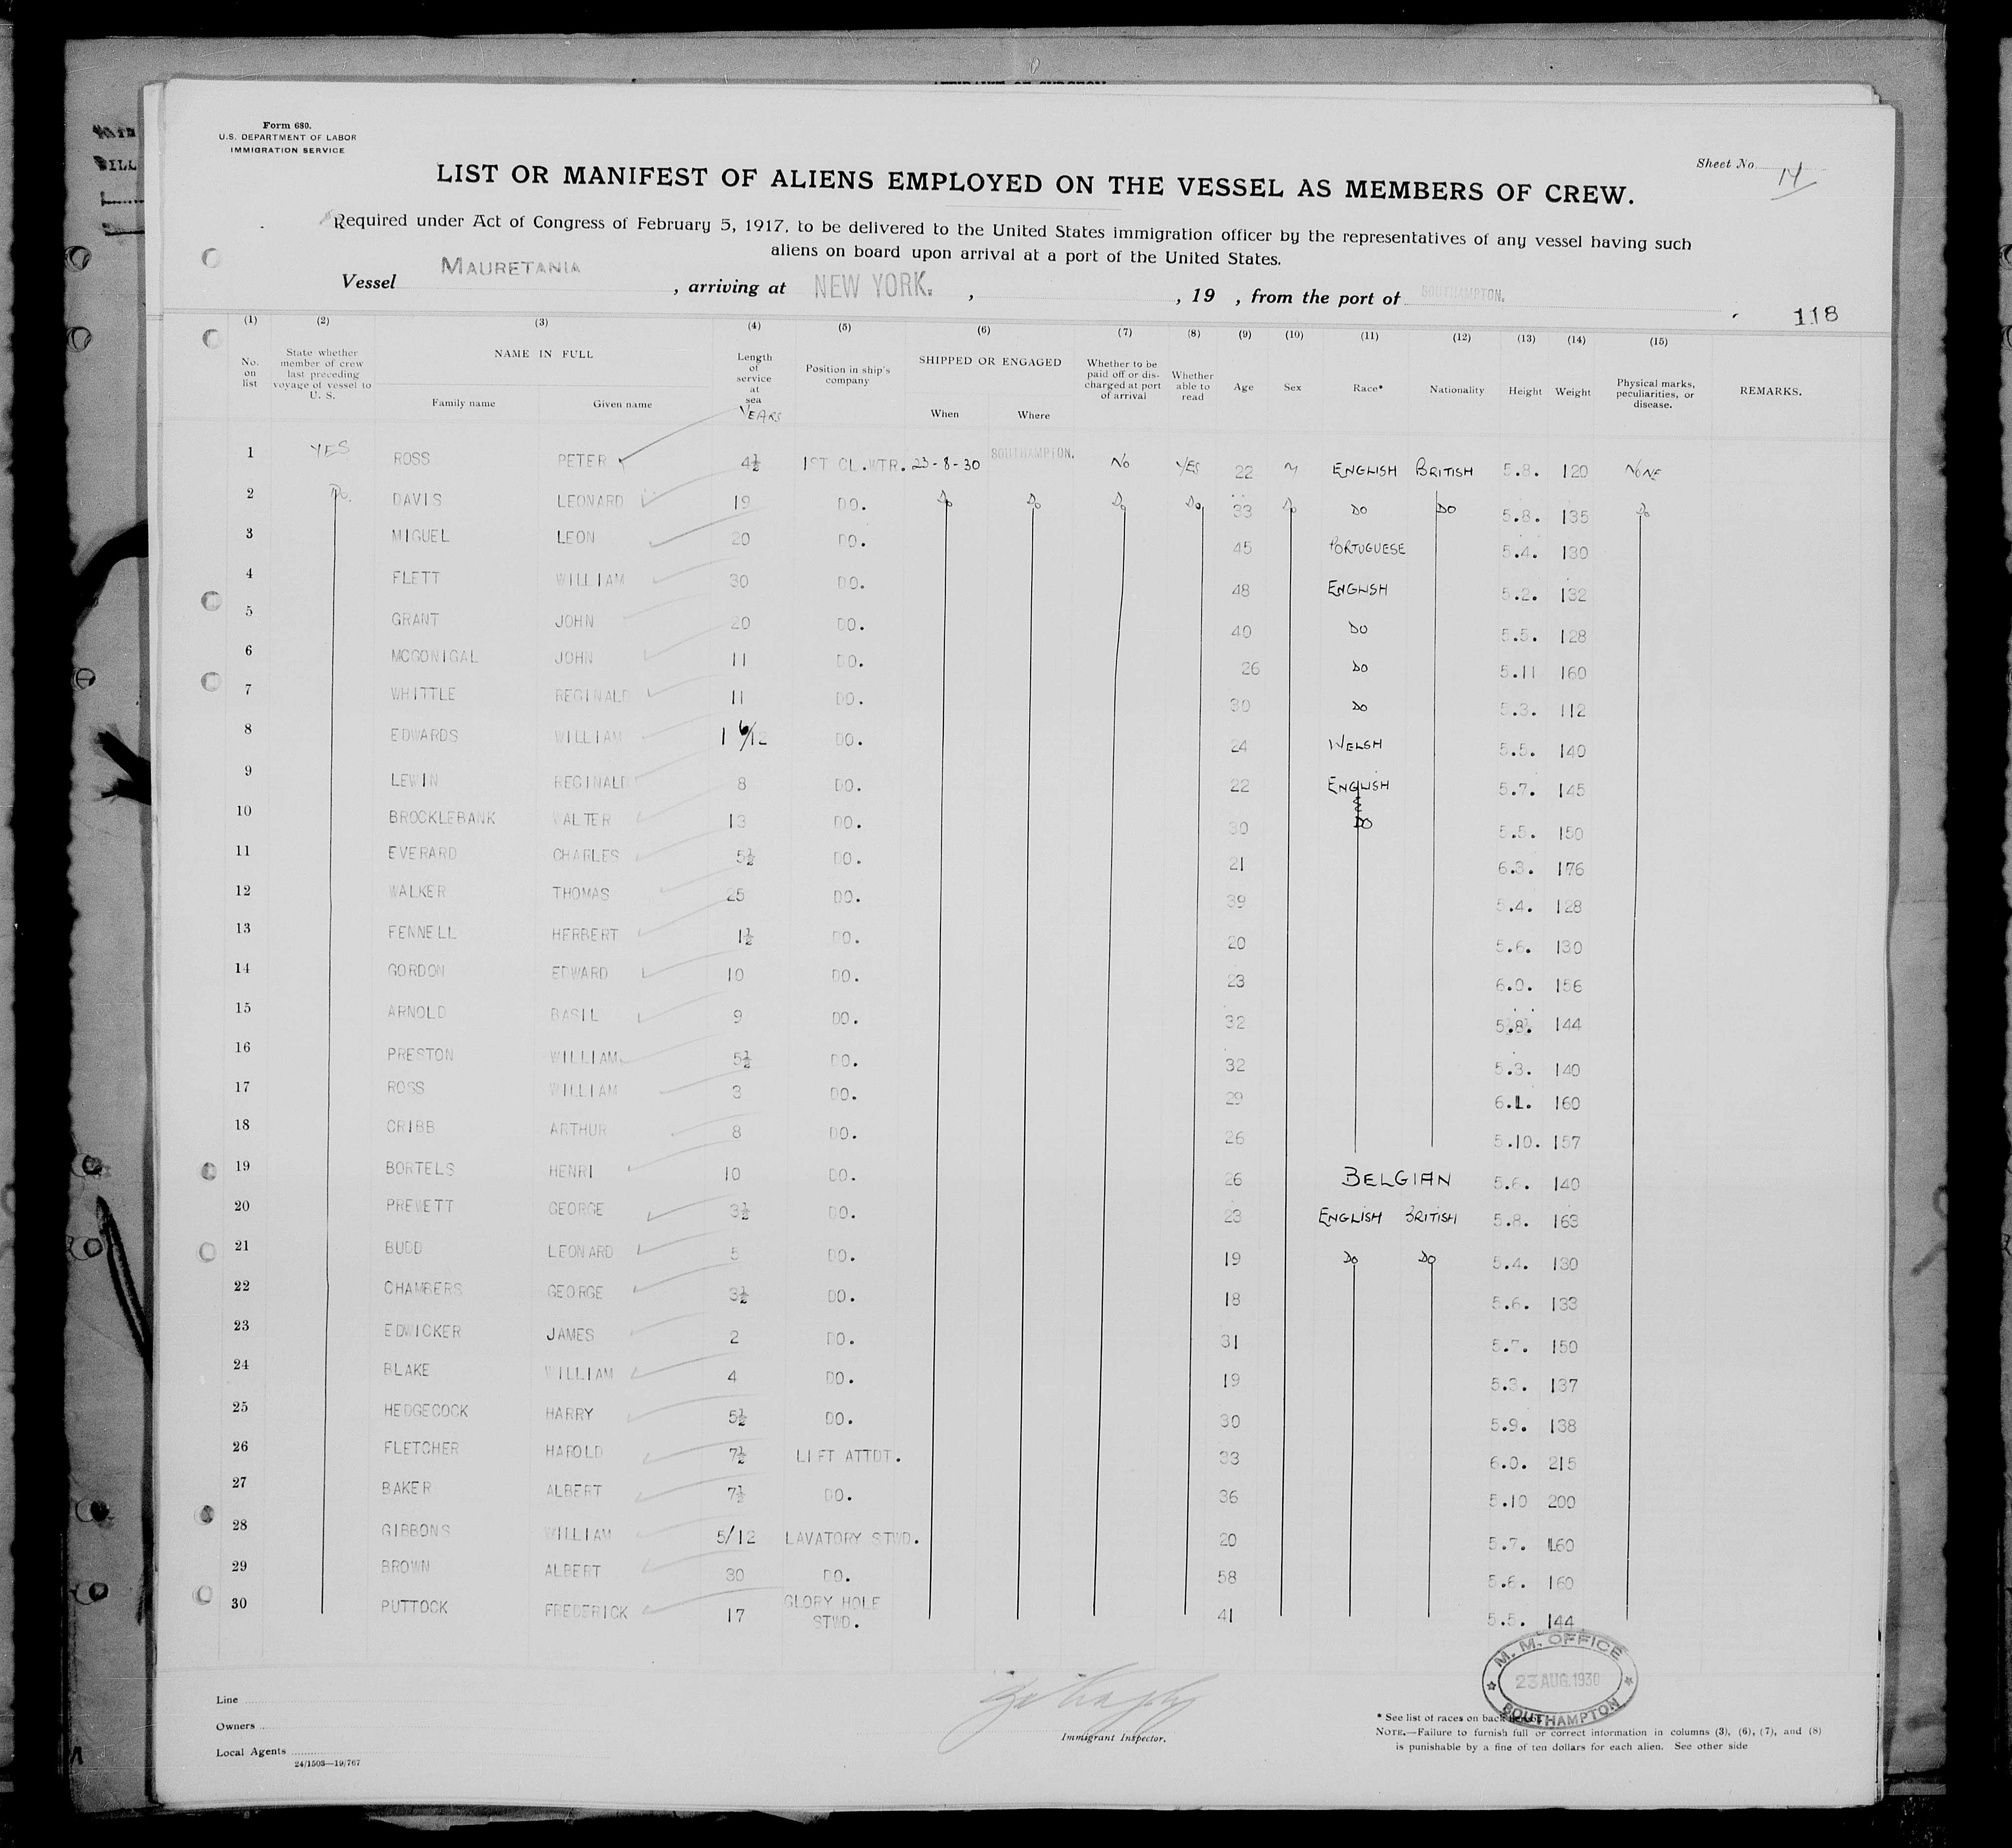 Form 680.
U.S. DEPARTMENT OF LABOR
IMMIGRATION SERVICE
Sheet No. 14
LIST OR MANIFEST OF ALIENS EMPLOYED ON THE VESSEL AS MEMBERS OF CREW.
Required under Act of Congress of February 5, 1917, to be delivered to the United States immigration officer by the representatives of any vessel having such
aliens on board upon arrival at a port of the United States.
Vessel MAURETANIA, arriving at NEW YORK. , , 19 , from the port of SOUTHAMPTON.
118
(1) (2) (3) (4) (5) (6) (7) (8) (9) (10) (11) (12) (13) (14) (15)
No. on list State whether member of crew last preceding voyage of vessel to U. S. NAME IN FULL Family name Given name Length of service at sea YEARS Position in ship's company SHIPPED OR ENGAGED When Where Whether to be paid off or discharged at port of arrival Whether able to read Age Sex Race* Nationality Height Weight Physical marks, peculiarities, or disease. REMARKS.
1 YES ROSS PETER 4½ 1ST CL.WTR. 23-8-30 SOUTHAMPTON. NO YES 22 M ENGLISH BRITISH 5.8. 120 NONE
2 DO. DAVIS LEONARD 19 DO. DO DO DO DO 33 DO DO DO 5.8. 135 DO
3 MIGUEL LEON 20 DO. 45 PORTUGUESE 5.4. 130
4 FLETT WILLIAM 30 DO. 48 ENGLISH 5.2. 132
5 GRANT JOHN 20 DO. 40 DO 5.5. 128
6 MCGONIGAL JOHN 11 DO. 26 DO 5.11 160
7 WHITTLE REGINALD 11 DO. 30 DO 5.3. 112
8 EDWARDS WILLIAM 1 6/12 DO. 24 WELSH 5.5. 140
9 LEWIN REGINALD 8 DO. 22 ENGLISH 5.7. 145
10 BROCKLEBANK WALTER 13 DO. 30 DO 5.5. 150
11 EVERARD CHARLES 5½ DO. 21 6.3. 176
12 WALKER THOMAS 25 DO. 39 5.4. 128
13 FENNELL HERBERT 1½ DO. 20 5.6. 130
14 GORDON EDWARD 10 DO. 23 6.0. 156
15 ARNOLD BASIL 9 DO. 32 5.8. 144
16 PRESTON WILLIAM 5½ DO. 32 5.3. 140
17 ROSS WILLIAM 3 DO. 29 6.1. 160
18 CRIBB ARTHUR 8 DO. 26 5.10. 157
19 BORTELS HENRI 10 DO. 26 BELGIAN 5.6. 140
20 PREWETT GEORGE 3½ DO. 23 ENGLISH BRITISH 5.8. 163
21 BUDD LEONARD 5 DO. 19 DO DO 5.4. 130
22 CHAMBERS GEORGE 3½ DO. 18 5.6. 133
23 EDWICKER JAMES 2 DO. 31 5.7. 150
24 BLAKE WILLIAM 4 DO. 19 5.3. 137
25 HEDGECOCK HARRY 5½ DO. 30 5.9. 138
26 FLETCHER HAROLD 7½ LIFT ATTDT. 33 6.0. 215
27 BAKER ALBERT 7½ DO. 36 5.10 200
28 GIBBONS WILLIAM 5/12 LAVATORY STWD. 20 5.7. 160
29 BROWN ALBERT 30 DO. 58 5.6. 160
30 PUTTOCK FREDERICK 17 GLORY HOLE STWD. 41 5.5. 144
M. M. OFFICE
23 AUG. 1930
SOUTHAMPTON
Line
Owners
Local Agents
24/1503—19/767
Immigrant Inspector.
* See list of races on back
NOTE.—Failure to furnish full or correct information in columns (3), (6), (7), and (8)
is punishable by a fine of ten dollars for each alien. See other side